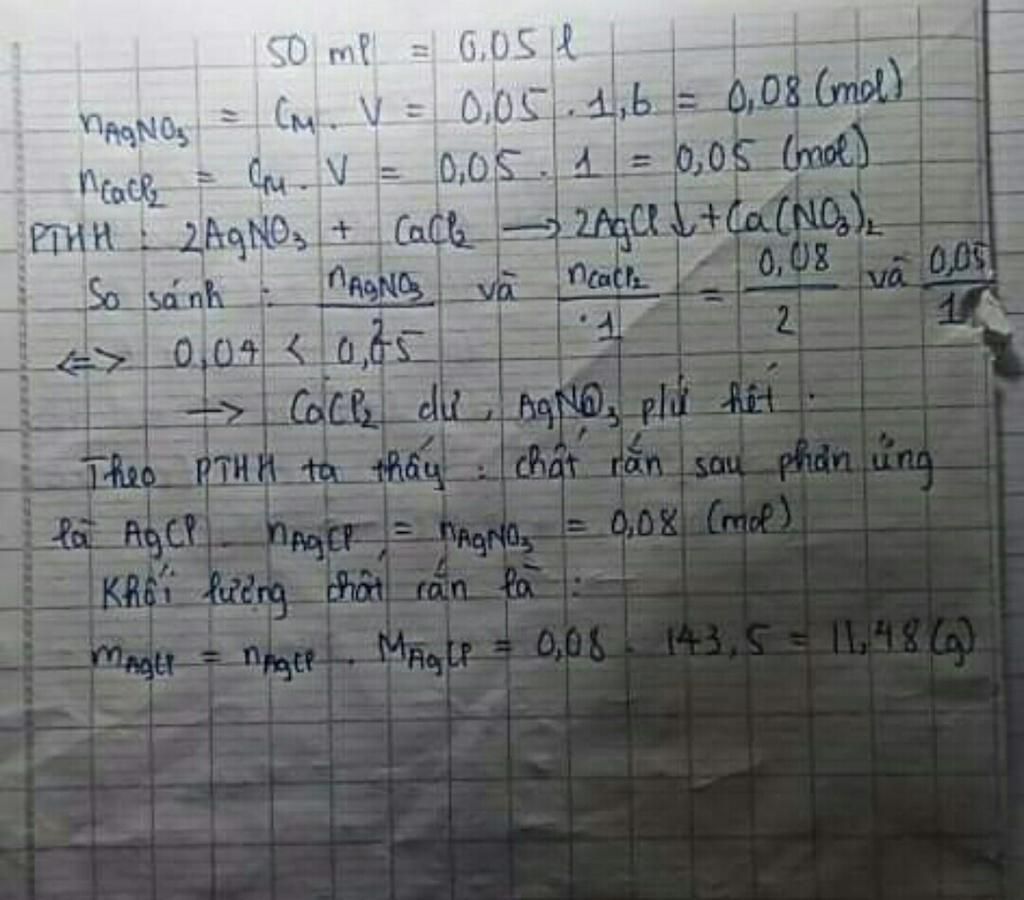 50 ml = 0,05 l
nAgNO₃ = CM . V = 0,05 . 1,6 = 0,08 (mol)
nCaCl₂ = CM . V = 0,05 . 1 = 0,05 (mol)
PTHH : 2AgNO₃ + CaCl₂ → 2AgCl ↓ + Ca(NO₃)₂
So sánh : nAgNO₃/2 và nCaCl₂/1 = 0,08/2 và 0,05/1
<=> 0,04 < 0,05
→ CaCl₂ dư, AgNO₃ phứ hết .
Theo PTHH ta thấy : chất rắn sau phản ứng
là AgCl. nAgCl = nAgNO₃ = 0,08 (mol)
Khối lượng chất rắn là :
mAgCl = nAgCl . MAgCl = 0,08 . 143,5 = 11,48 (g)